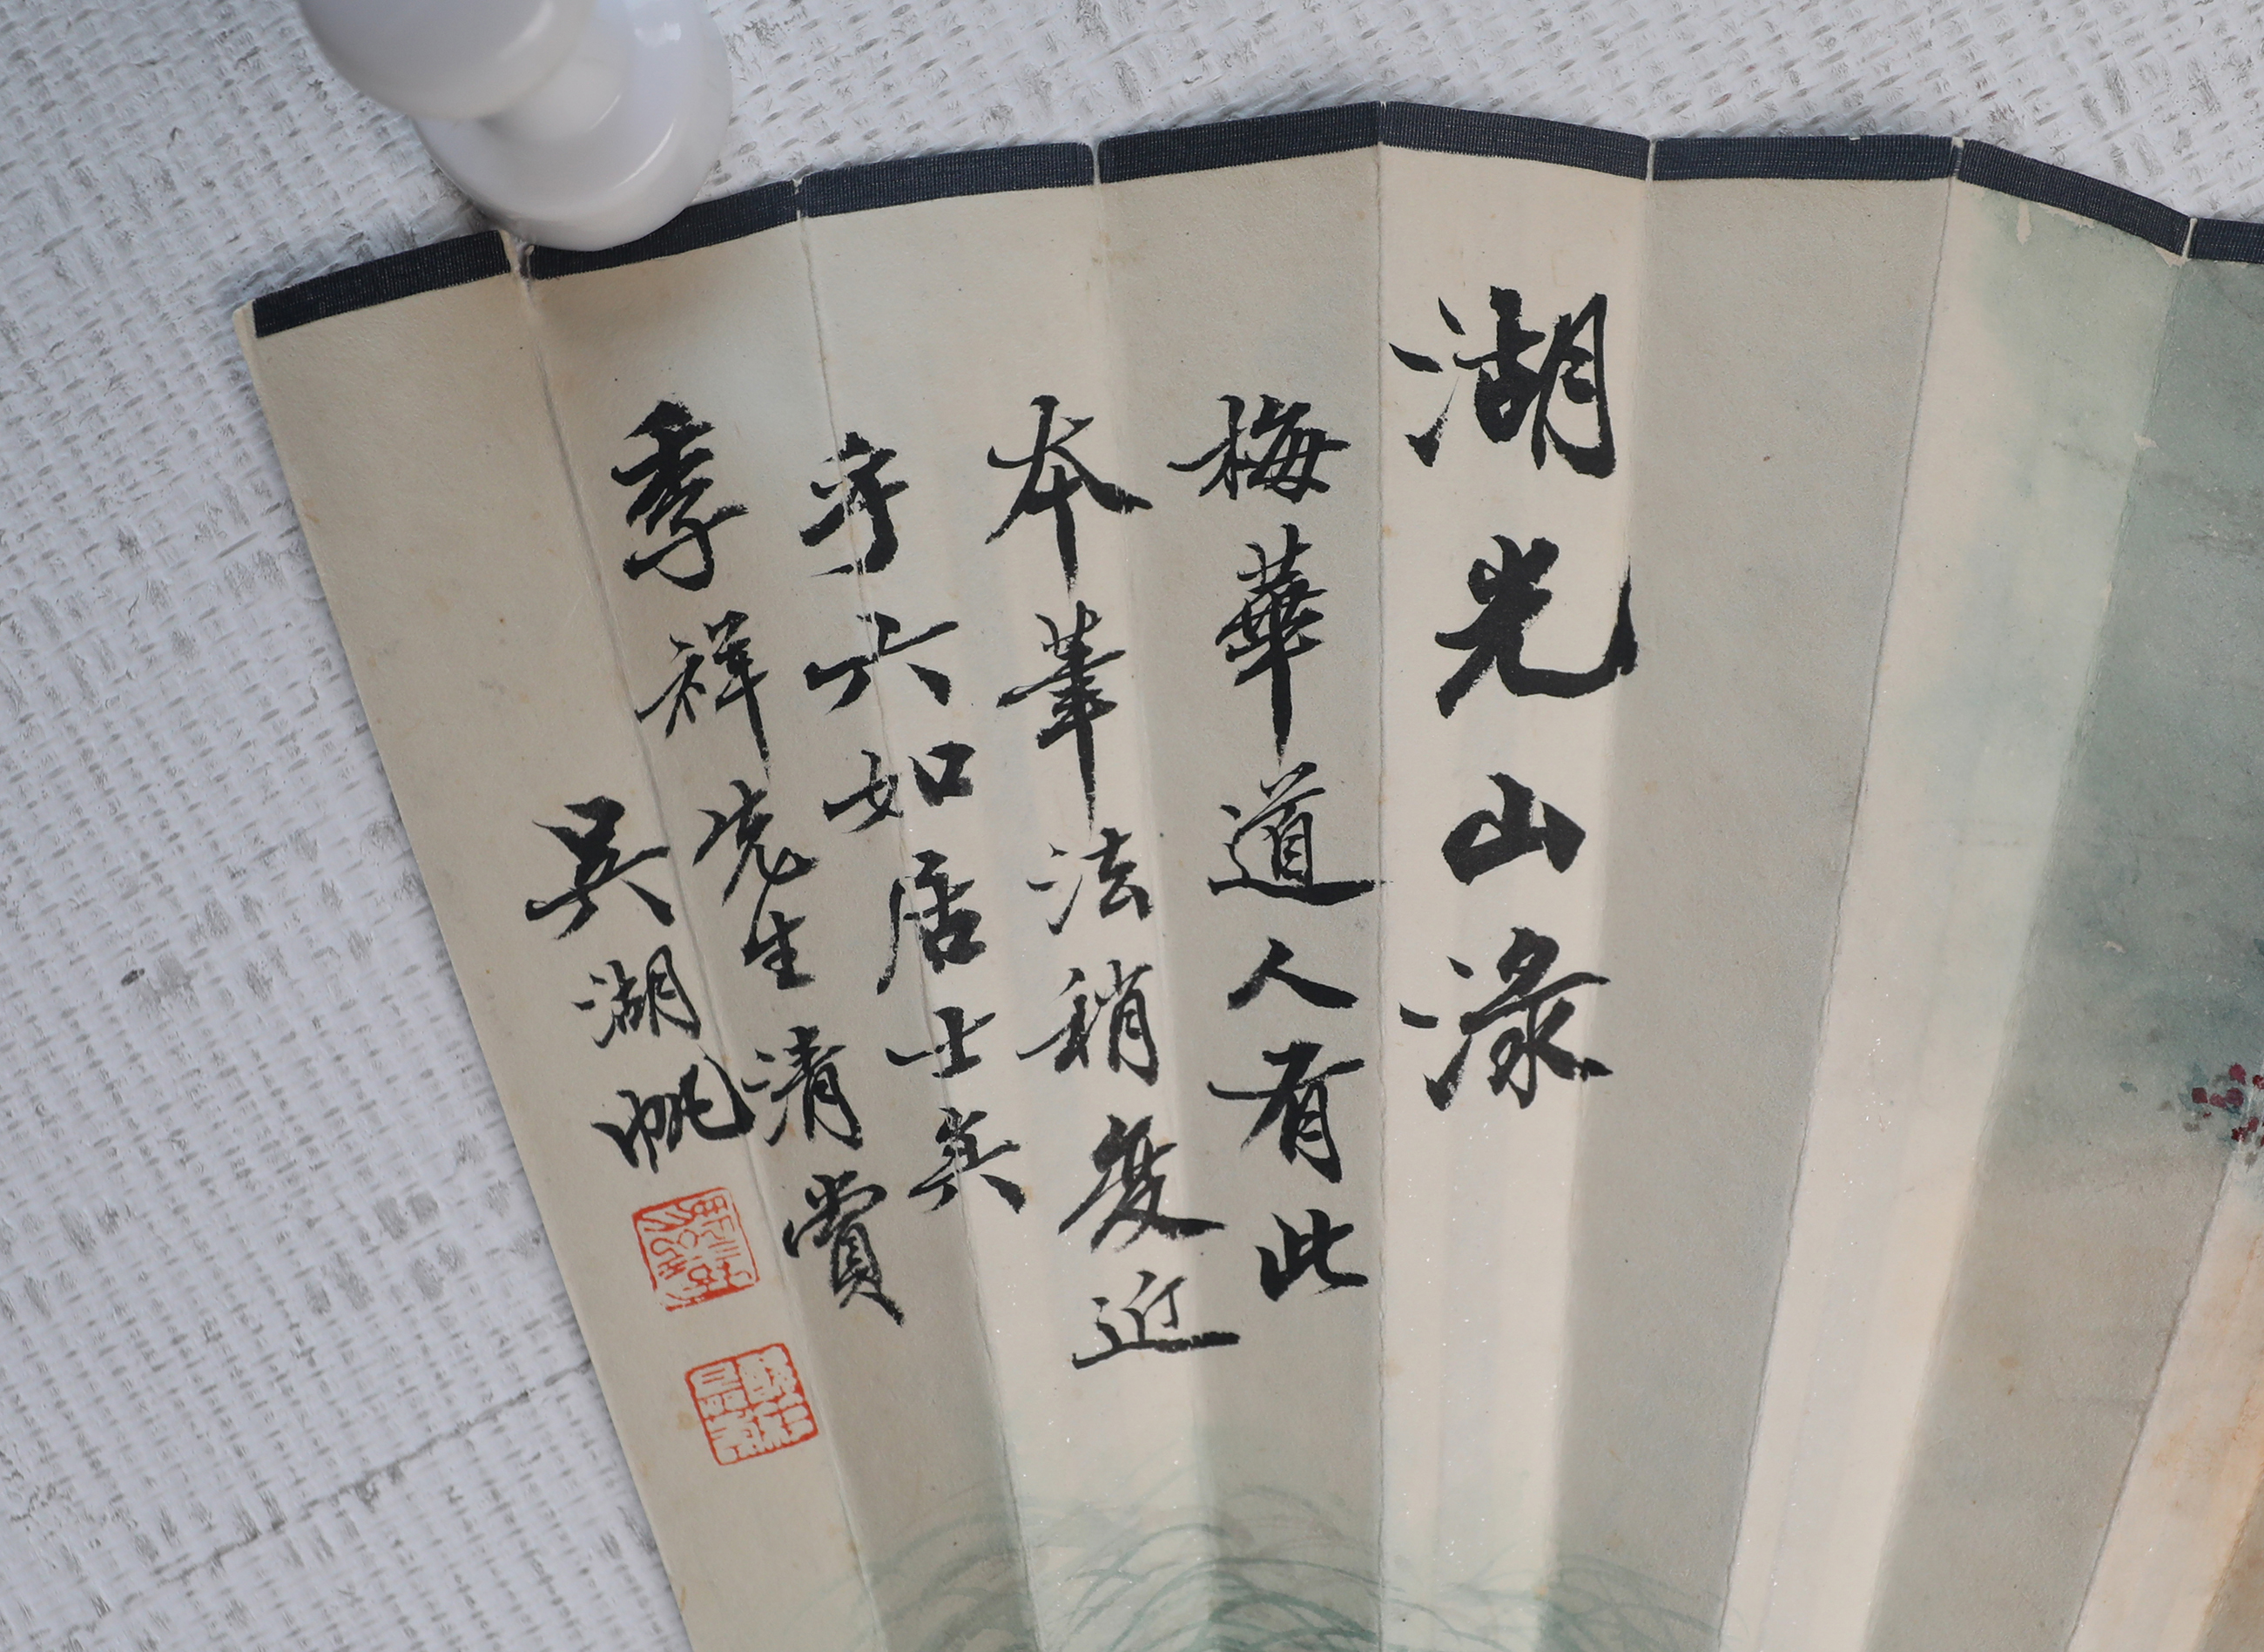 湖光山淥
梅華道人有此
本筆法稍變近
乎六如居士矣
季祥先生清賞
吳湖帆